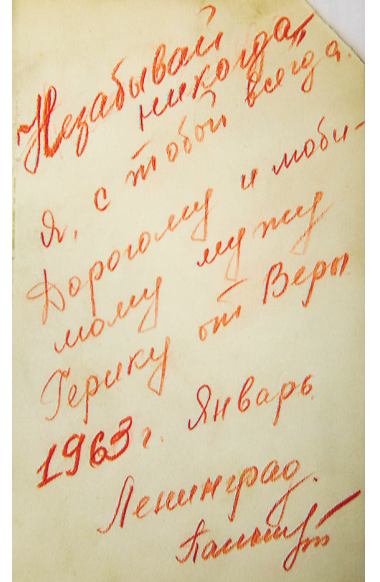 Незабывай
никогда
Я, с тобой всегда.
Дорогому и люби-
мому мужу
Герику от Веры
1963 г. Январь
Ленинград.